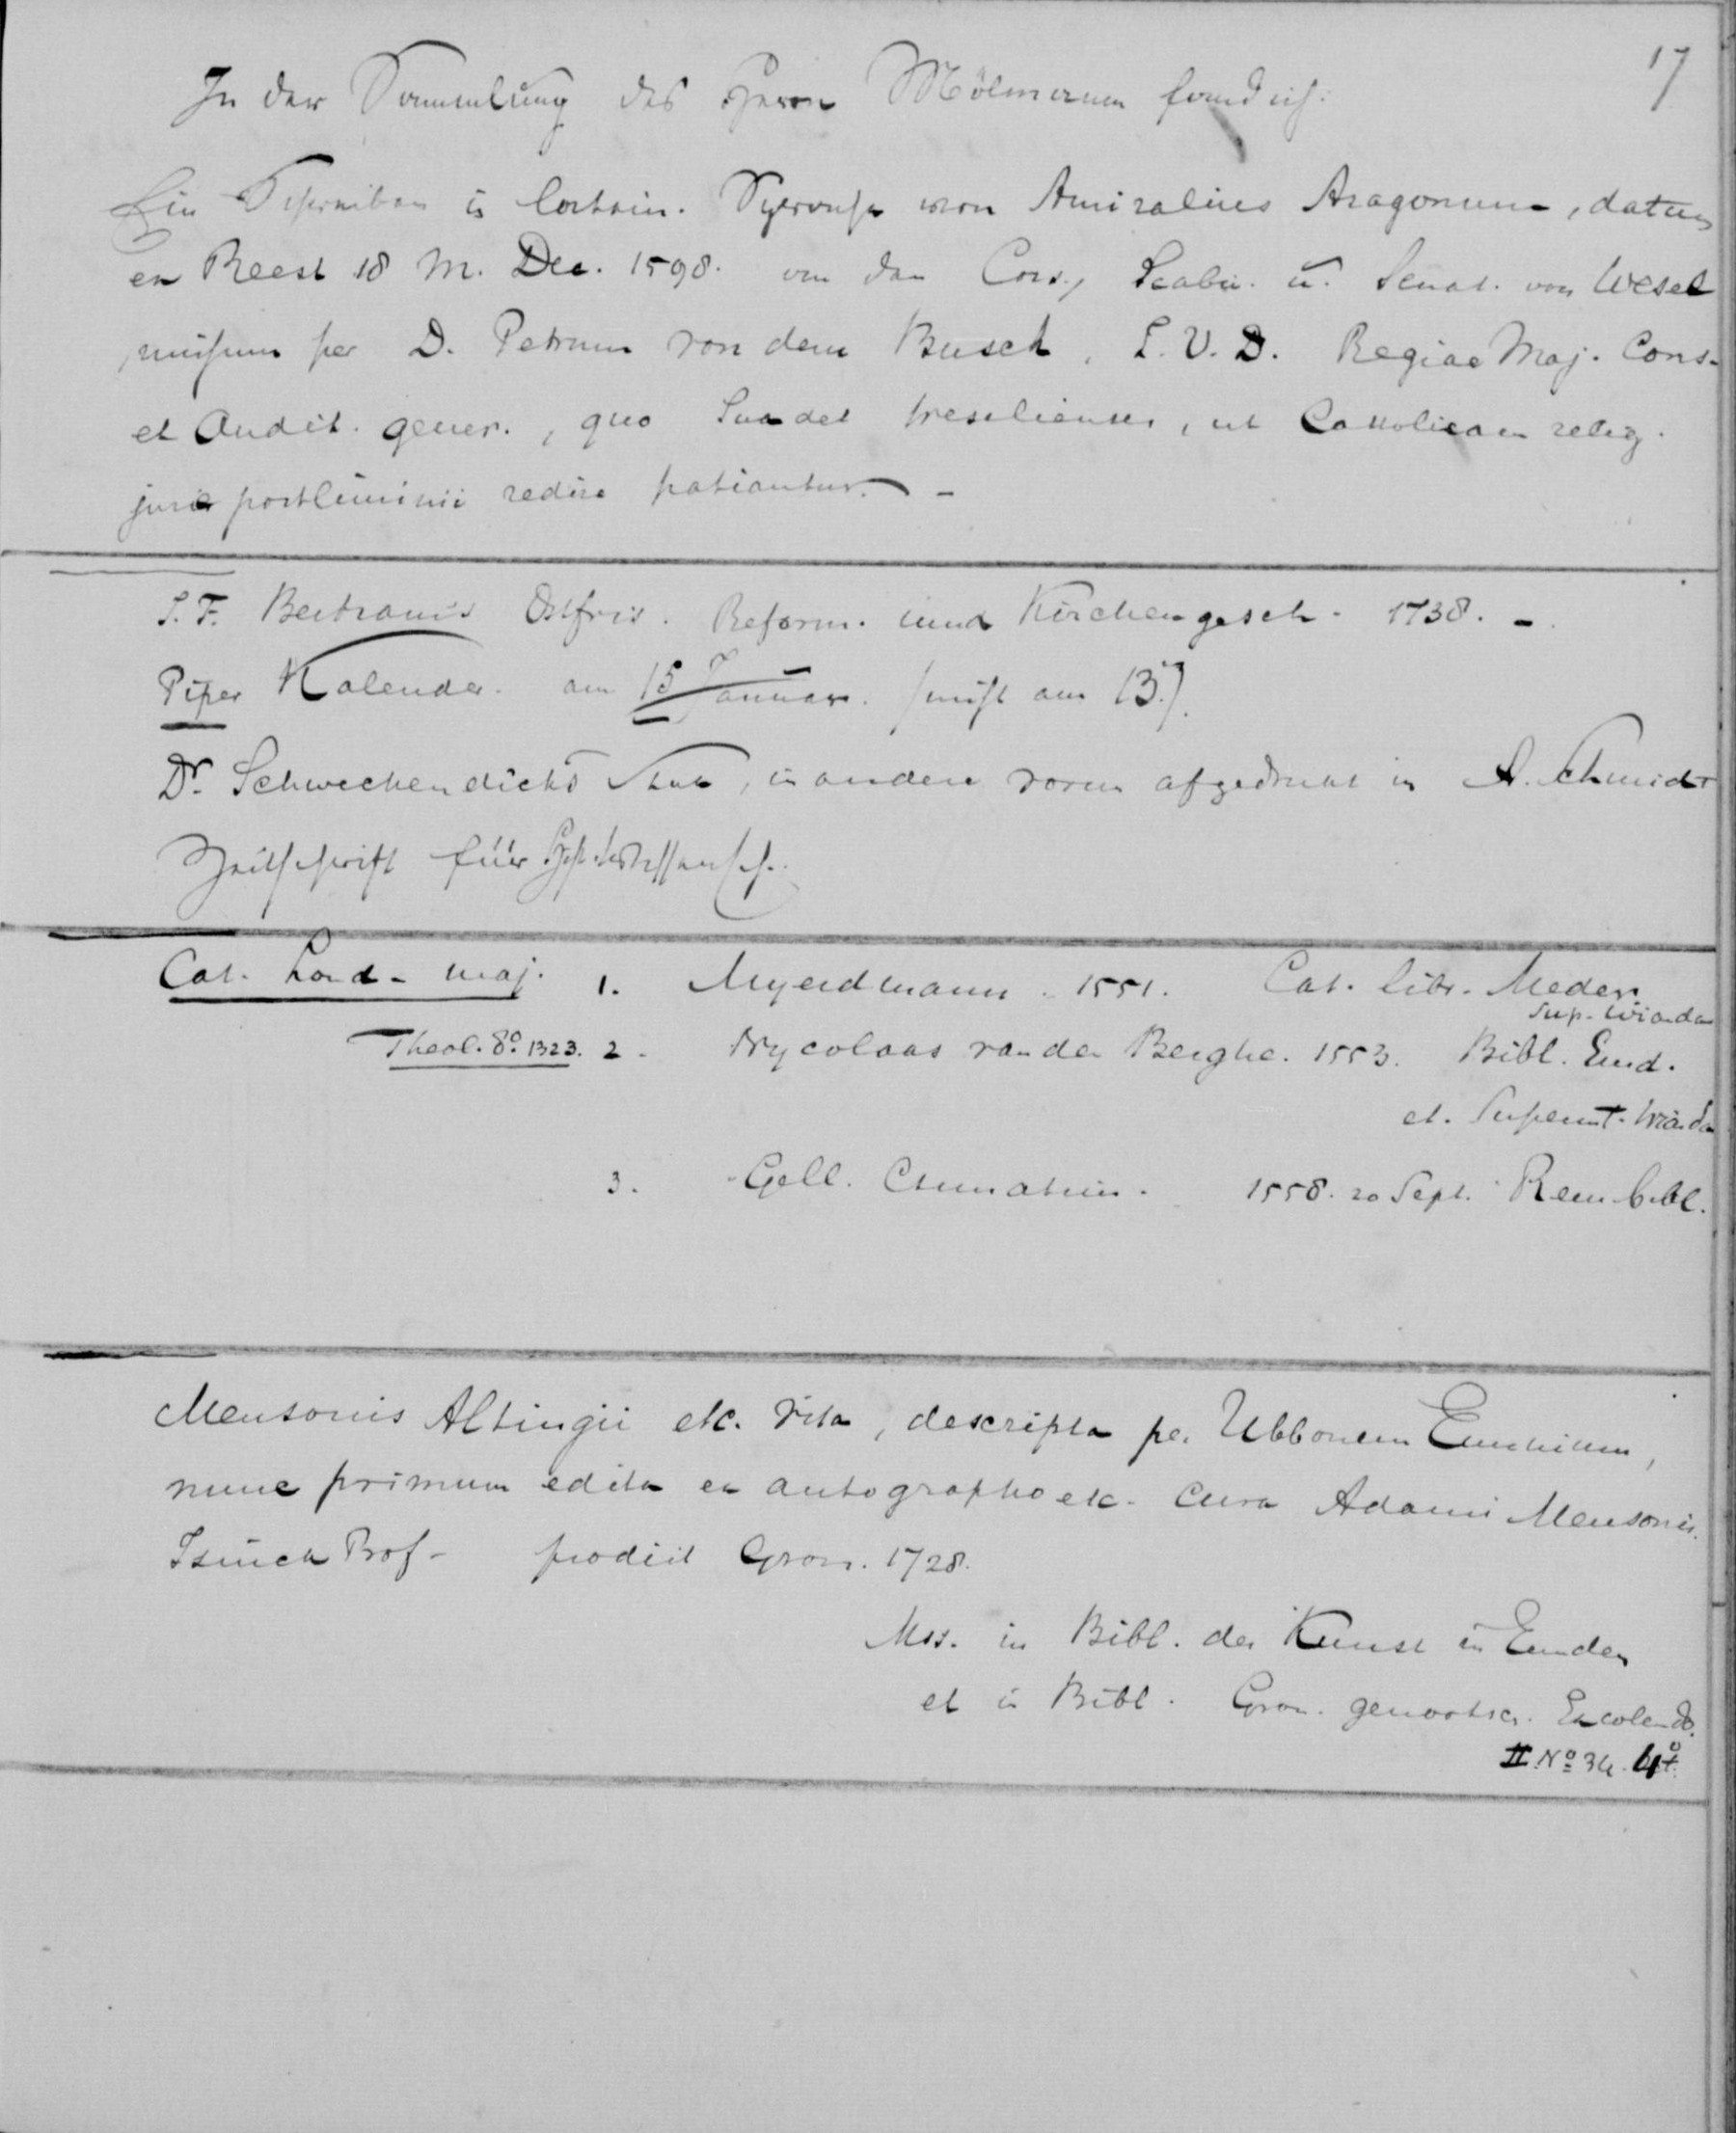 17
In der Sammlung des Herrn Mölmann fand ich:
Ein Schreiben in latein. Sprache von Amiralius Aragonum, datum
ex Reest 18 M. Dec. 1598. an den Cons., Scabin. u. Senat. von Wesel
missum per D. Petrum von dem Busch, I. V. D. Regiae Maj. Cons.
et Audit. gener., quo suadet Weselienses, ut Catholicam relig.
jure postliminii redire patiantur. -
I. F. Bertram's Ostfries. Reform. und Kirchengesch. 1738. -
Piper Kalender. am 15 Januar. (nicht am 13.)
Dr. Schweckendicks Stuk, in andere vorm afgedrukt in A. Schmidt
Zeitschrift für
Cat. Lond. maj. 1. Meyerdmann. 1551. Cat. libr. Meder
Sup. Wiarda
Theol. 8o. 1323. 2. Nycolaas van der Berghe. 1553. Bibl. Emd.
et. Superint. Wiarda
3. Gell. Ctematius. 1558. 20 Sept. Rem. bibl.
Mensonis Altingii etc. vita, descripta per Ubbonem Emmium,
nunc primum edita ex autographo etc. cura Adami Mensonis
Isinck Prof. prodiit Gron. 1728.
Mss. in Bibl. der Kunst in Emden
et in Bibl. Gron. genootsch. Excolendo.
II. No 34. 4o.